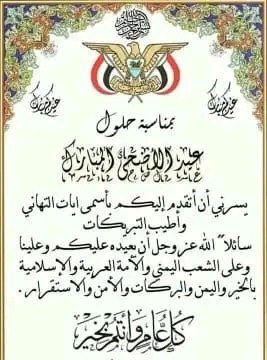 بسم الله الرحمن الرحيم
عيدكم مبارك
عيدكم مبارك
بمناسبة حلول
عيد الأضحى المبارك
يسرني أن أتقدم إليكم بأسمى ايات التهاني
وأطيب التبريكات
سائلاً الله عز وجل أن يعيده عليكم وعلينا
وعلى الشعب اليمني والأمة العربية والإسلامية
بالخير واليمن والبركات والأمن والاستقرار .
كل عام وأنتم بخير